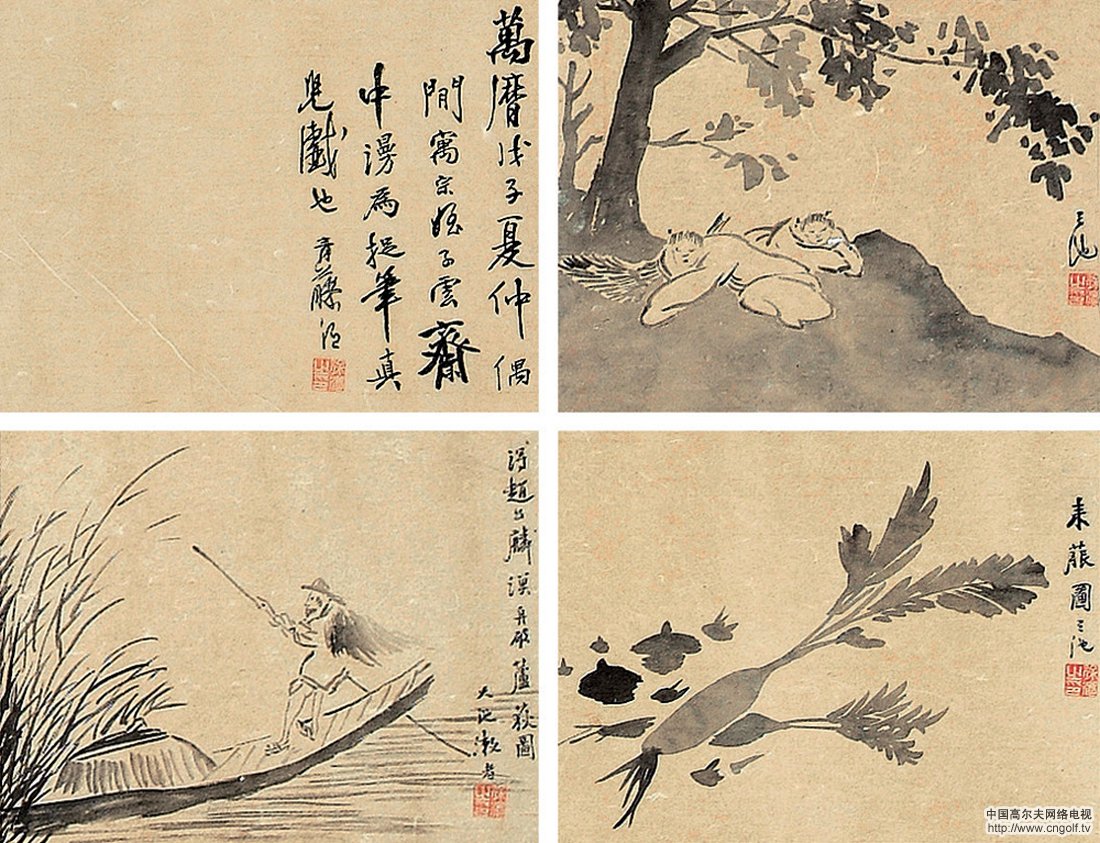 萬曆戊子夏仲偶
閒寓宗姪子雲齋
中漫爲捉筆真
兒戲也 青藤道
天池
得趙公麟漢舟破蘆荻圖
天池漱者
來菔圖 天池
中国高尔夫网络电视
http://www.cngolf.tv